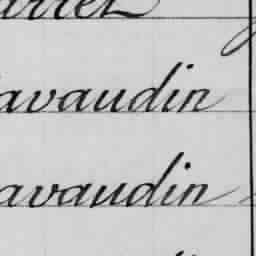 arrez
avaudin
avaudin